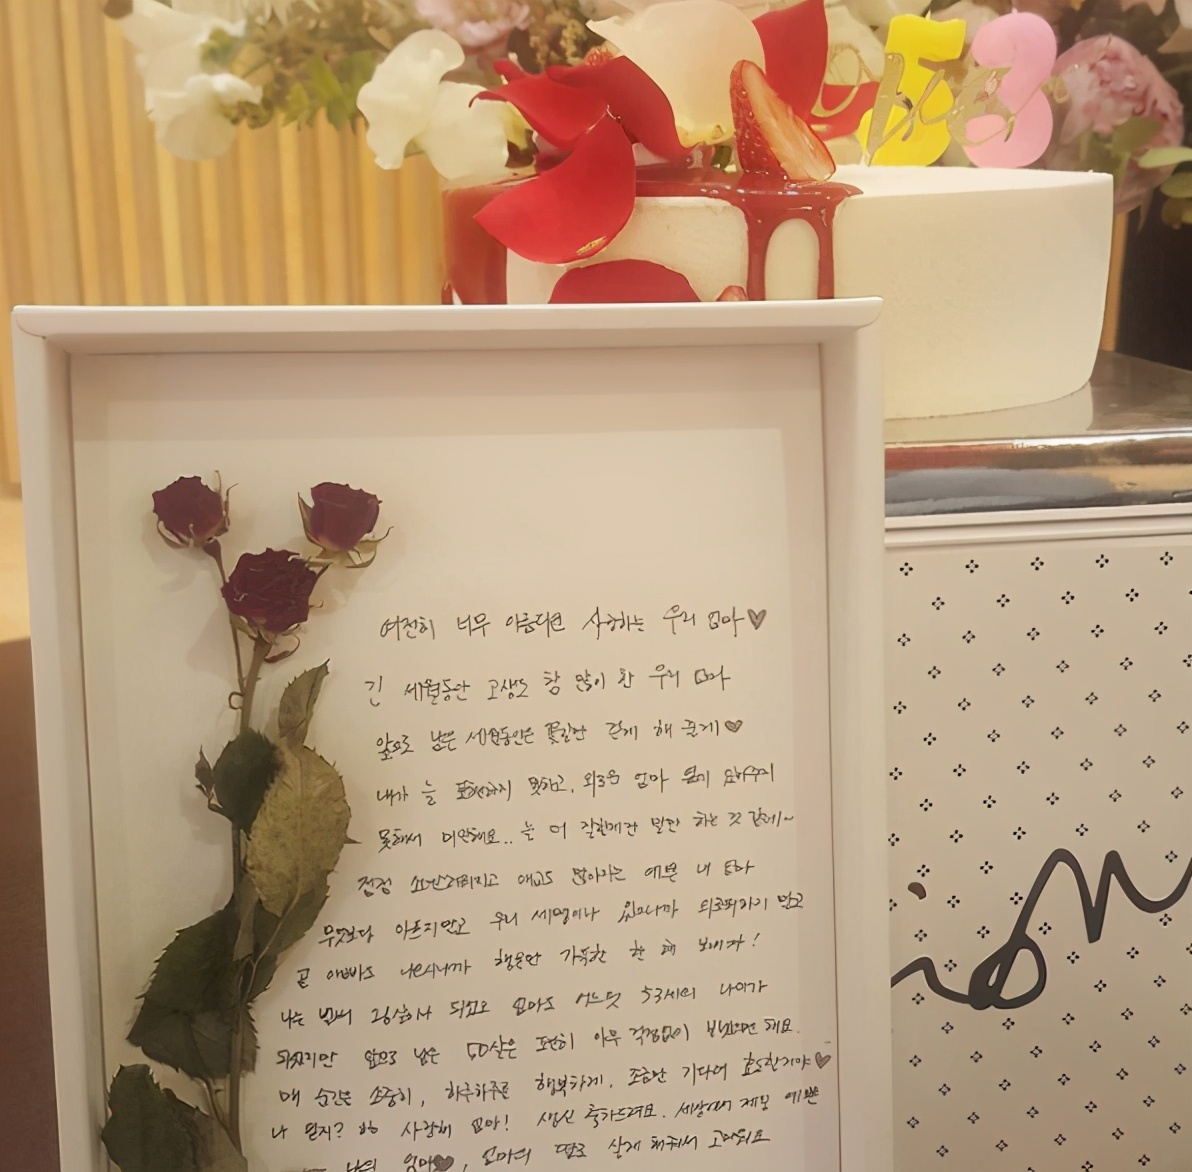 53
여전히 너무 아름다운 사랑하는 우리 엄마♥
긴 세월동안 고생도 참 많이 한 우리 엄마
앞으로 남은 세월동안은 꽃길만 걷게 해 줄게♥
내가 늘 표현하지 못하고, 외로운 엄마 옆에
못해서 미안해요.. 늘 더 잘할게란 말만 하는 것 같네~
점점 소녀스러워지고 애교도 많아지는 예쁜 내
무엇보다 아프지말고 우리 세명이나 있으니까 외로워하지 말고
곧 아빠도 나으시니까 행운만 가득한 한 해 보내자!
나는 벌써 26살이나 되었고 엄마도 어느덧 53세의 나이가
되었지만 앞으로 남은 50살은 편히 아무 걱정없이 보냈으면 해요.
매 순간은 소중히, 하루하루를 행복하게. 조금만 기다려 효도할거야♥
나 믿지? 사랑해 엄마! 생신 축하드려요. 세상에서 제일 예쁜
나의 엄마♥, 엄마의 딸로 살게 해줘서 고마워요